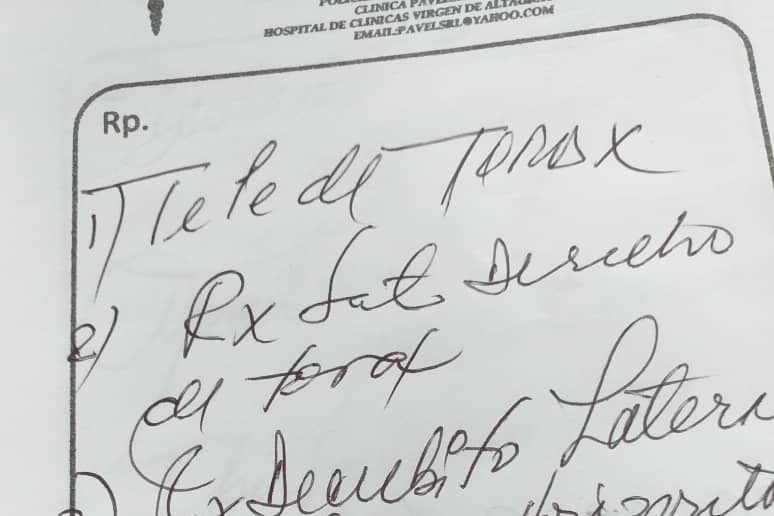 CLINICA
HOSPITAL DE CLINICAS VIRGEN DE
EMAIL:PAVELSRL@YAHOO.COM
Rp.
1) Tele de TORAX
2) Rx Lat Derecho
de torax
Rx Decubito Latera